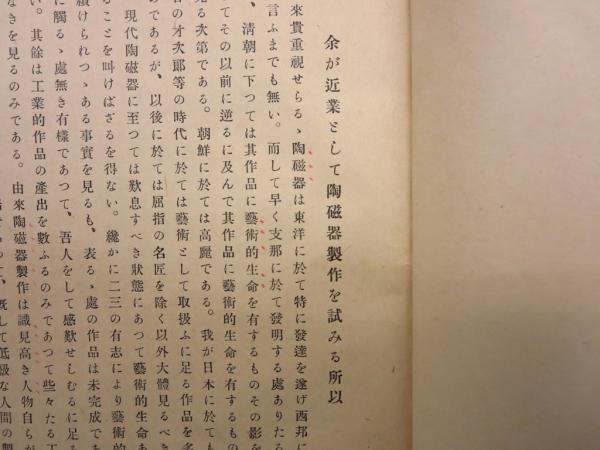 余が近業として陶磁器製作を試みる所以
來貴重視せらるゝ陶磁器は東洋に於て特に發達を遂げ西邦に
言ふまでも無い。而して早く支那に於て發明する處ありたる
、清朝に下つては其作品に藝術的生命を有するものその影を
てその以前に逆るに及んで其作品に藝術的生命を有するもの
見る次第である。朝鮮に於ては高麗である。我が日本に於ても
の才次郎等の時代に於ては藝術として取扱ふに足る作品を多
のであるが、以後に於ては屈指の名匠を除く以外大體見るべき
現代陶磁器に至つては歎息すべき狀態にあつて藝術的生命あ
ることを叫けばざるを得ない。纔かに二三の有志により藝術的
續けられつゝある事實を見るも、表るゝ處の作品は未完成であ
に觸るゝ處無き有樣であつて、吾人をして感歎せしむるに足る
い。其餘は工業的作品の產出を數ふるのみであつて些々たる工
なきを見るのみである。由來陶磁器製作は識見高き人物自らが
つて、既して低級な人間の製